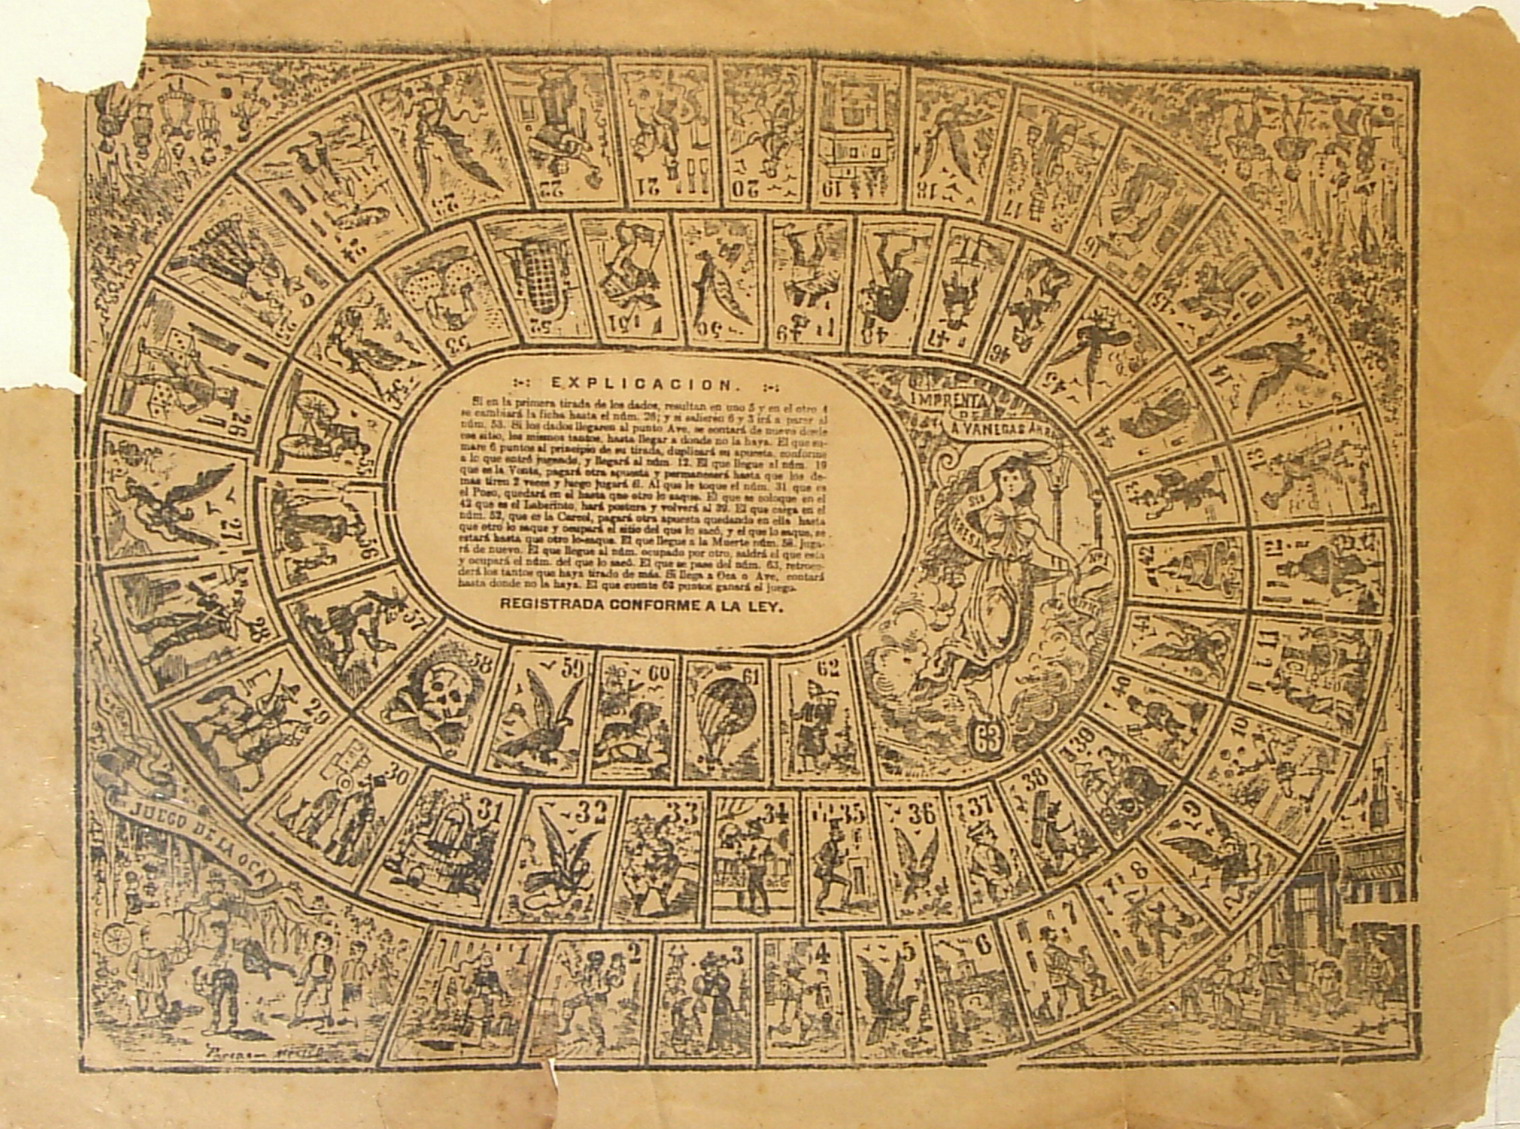 EXPLICACION.
Si en la primera tirada de los dados, resultan en uno 5 y en el otro 4
se cambiará la ficha hasta el núm. 26; y si salieren 6 y 3 irá a parar al
núm. 53. Si los dados llegaren al punto Ave, se contará de nuevo desde
ese sitio, los mismos tantos, hasta llegar a donde no la haya. El que su-
mare 6 puntos al principio de su tirada, duplicará su apuesta, conforme
a lo que entró jugando, y llegará al núm. 12. El que llegue al núm. 19
que es la Venta, pagará otra apuesta y permanecerá hasta que los de-
mas tiren 2 veces y luego jugará él. Al que le toque el núm. 31 que es
el Pozo, quedará en él hasta que otro lo saque. El que se coloque en el
42 que es el Laberinto, hará postura y volverá al 39. El que caiga en el
núm. 52, que es la Carcel, pagará otra apuesta quedando en ella hasta
que otro lo saque y ocupará el sitio del que lo sacó, y el que lo saque, se
estará hasta que otro lo saque. El que llegue a la Muerte núm. 58, juga-
rá de nuevo. El que llegue al núm. ocupado por otro, saldrá el que esta
y ocupará el núm. del que lo sacó. El que se pase del núm. 63, retroce-
derá los tantos que haya tirado de más. Si llega a Oca o Ave, contará
hasta donde no la haya. El que cuente 63 puntos ganará el juego.
REGISTRADA CONFORME A LA LEY.
IMPRENTA
DE
A VANEGAS
JUEGO DE LA OCA
1
2
3
4
5
6
7
8
9
10
11
12
13
14
15
16
17
18
19
20
21
22
23
24
25
26
27
28
29
30
31
32
33
34
35
36
37
38
39
40
41
42
44
45
46
47
48
49
50
51
52
53
54
55
56
57
58
59
60
61
62
63